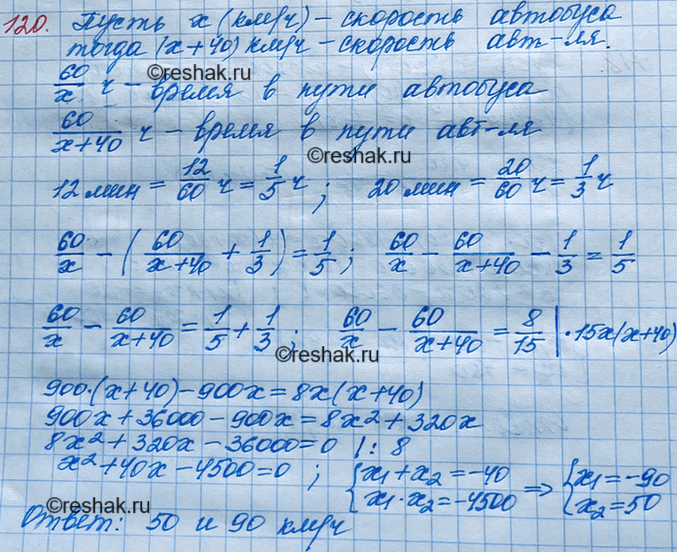 120. Пусть x (км/ч) - скорость автобуса
тогда (x+40) км/ч - скорость авт-ля.
60/x ч - время в пути автобуса
©reshak.ru
60/(x+40) ч - время в пути авт-ля
©reshak.ru
12 мин = 12/60 ч = 1/5 ч ; 20 мин = 20/60 ч = 1/3 ч
60/x - (60/(x+40) + 1/3) = 1/5 ; 60/x - 60/(x+40) - 1/3 = 1/5
60/x - 60/(x+40) = 1/5 + 1/3 ; 60/x - 60/(x+40) = 8/15 | · 15x(x+40)
©reshak.ru
900·(x+40) - 900x = 8x(x+40)
900x + 36000 - 900x = 8x² + 320x
8x² + 320x - 36000 = 0 | : 8
x² + 40x - 4500 = 0 ; { x₁ + x₂ = -40 x₁ · x₂ = -4500 ⇒ { x₁ = -90 x₂ = 50
©reshak.ru
©reshak.ru
Ответ: 50 и 90 км/ч